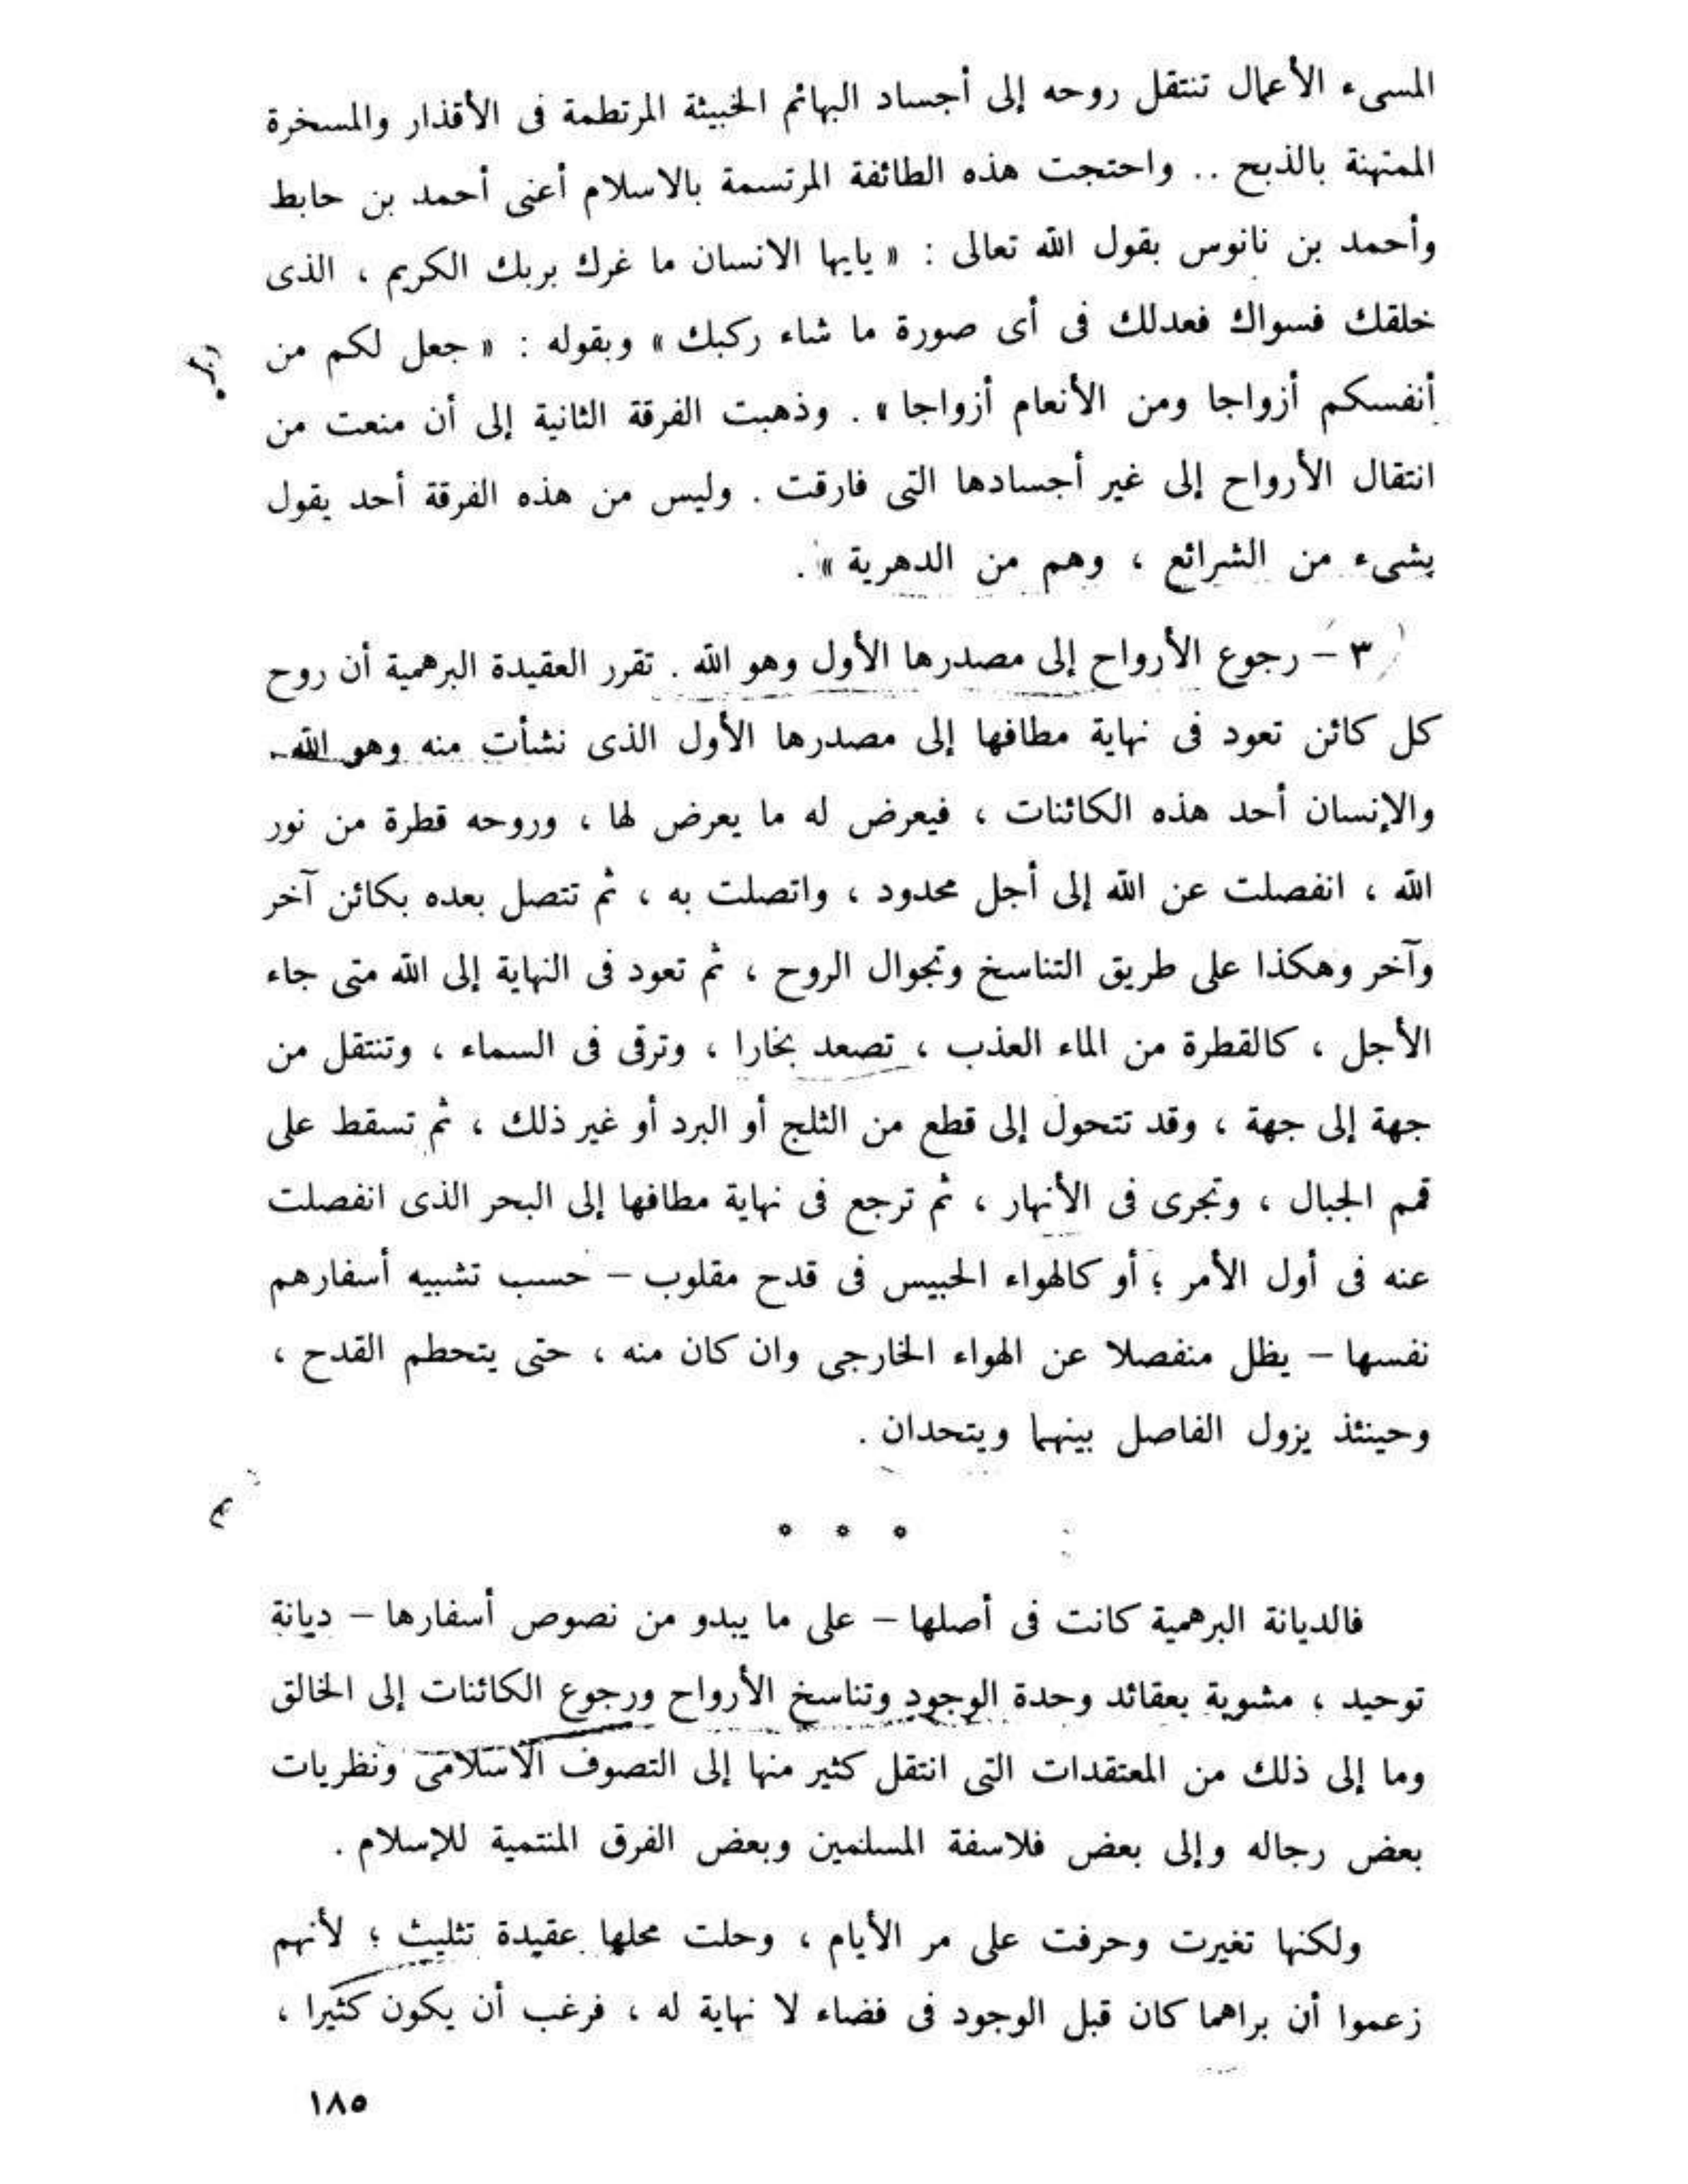 المسىء الأعمال تنتقل روحه إلى أجساد البهائم الخبيثة المرتطمة فى الأقذار والمسخرة
الممتهنة بالذبح .. واحتجت هذه الطائفة المرتسمة بالاسلام أعنى أحمد بن حابط
وأحمد بن نانوس بقول الله تعالى : « يايها الانسان ما غرك بربك الكريم ، الذى
خلقك فسواك فعدلك فى أى صورة ما شاء ركبك » وبقوله : « جعل لكم من
أنفسكم أزواجا ومن الأنعام أزواجا » . وذهبت الفرقة الثانية إلى أن منعت من
انتقال الأرواح إلى غير أجسادها التى فارقت . وليس من هذه الفرقة أحد يقول
بشىء من الشرائع ، وهم من الدهرية » .
٣ – رجوع الأرواح إلى مصدرها الأول وهو الله . تقرر العقيدة البرهمية أن روح
كل كائن تعود فى نهاية مطافها إلى مصدرها الأول الذى نشأت منه وهو الله .
والإنسان أحد هذه الكائنات ، فيعرض له ما يعرض لها ، وروحه قطرة من نور
الله ، انفصلت عن الله إلى أجل محدود ، واتصلت به ، ثم تتصل بعده بكائن آخر
وآخر وهكذا على طريق التناسخ وتجوال الروح ، ثم تعود فى النهاية إلى الله متى جاء
الأجل ، كالقطرة من الماء العذب ، تصعد بخارا ، وترقى فى السماء ، وتنتقل من
جهة إلى جهة ، وقد تتحول إلى قطع من الثلج أو البرد أو غير ذلك ، ثم تسقط على
قمم الجبال ، وتجرى فى الأنهار ، ثم ترجع فى نهاية مطافها إلى البحر الذى انفصلت
عنه فى أول الأمر ؛ أو كالهواء الحبيس فى قدح مقلوب – حسب تشبيه أسفارهم
نفسها – يظل منفصلا عن الهواء الخارجى وان كان منه ، حتى يتحطم القدح ،
وحينئذ يزول الفاصل بينهما ويتحدان .
* * *
فالديانة البرهمية كانت فى أصلها – على ما يبدو من نصوص أسفارها – ديانة
توحيد ؛ مشوبة بعقائد وحدة الوجود وتناسخ الأرواح ورجوع الكائنات إلى الخالق
وما إلى ذلك من المعتقدات التى انتقل كثير منها إلى التصوف الاسلامى ونظريات
بعض رجاله وإلى بعض فلاسفة المسلمين وبعض الفرق المنتمية للإسلام .
ولكنها تغيرت وحرفت على مر الأيام ، وحلت محلها عقيدة تثليث ؛ لأنهم
زعموا أن براهما كان قبل الوجود فى فضاء لا نهاية له ، فرغب أن يكون كثيرا ،
١٨٥